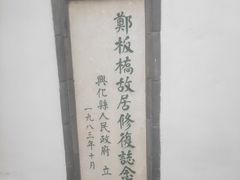 鄭板橋故居修復誌念
興化縣人民政府 立
一九八三年十月